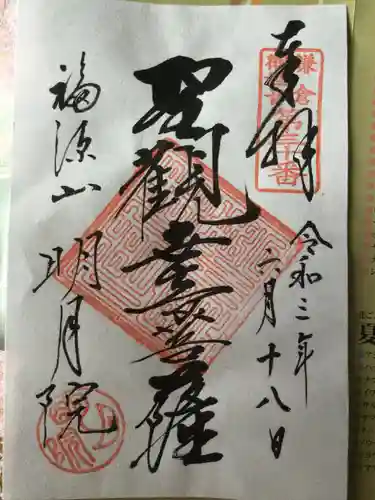 奉拝
鎌倉
第三十番
令和三年
六月十八日
聖觀世音菩薩
福源山
明月院
夏